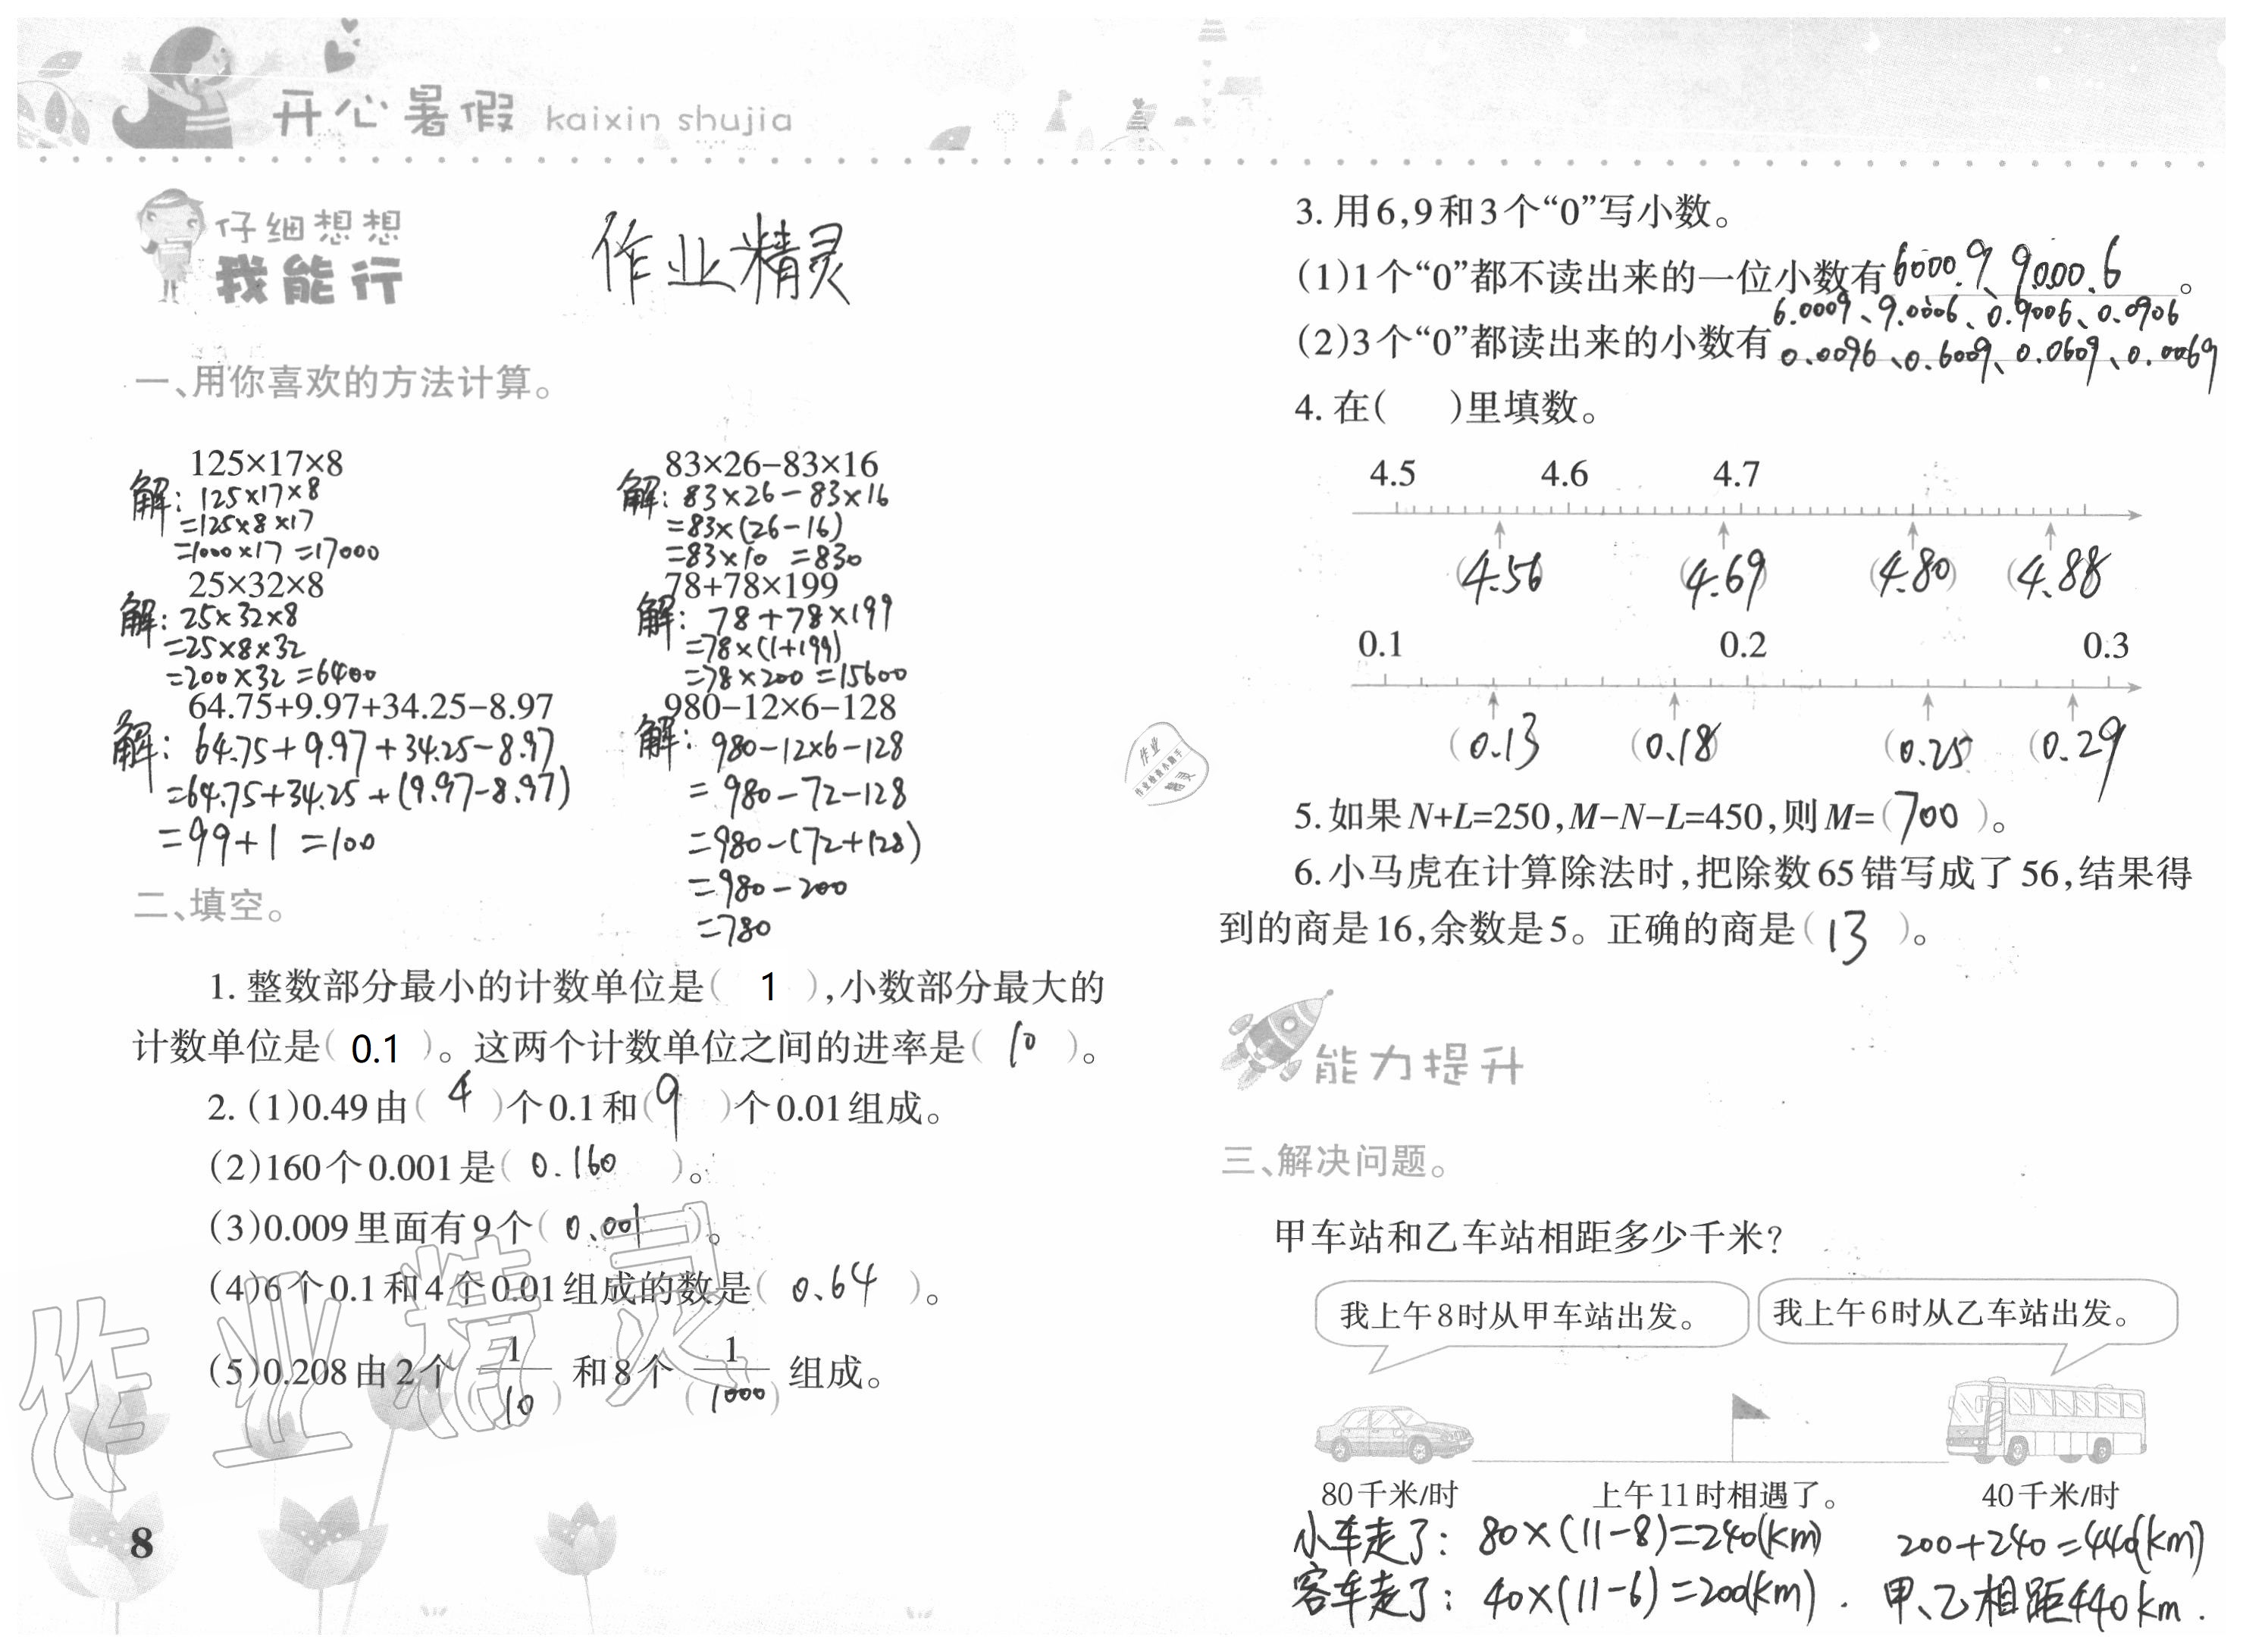 开心暑假 kaixin shujia
仔细想想
我能行
作业精灵
一、用你喜欢的方法计算。
125×17×8
解: 125×17×8
=125×8×17
=1000×17 =17000
83×26-83×16
解: 83×26-83×16
=83×(26-16)
=83×10 =830
25×32×8
解: 25×32×8
=25×8×32
=200×32 =6400
78+78×199
解: 78+78×199
=78×(1+199)
=78×200 =15600
64.75+9.97+34.25-8.97
解: 64.75+9.97+34.25-8.97
=64.75+34.25+(9.97-8.97)
=99+1 =100
980-12×6-128
解: 980-12×6-128
=980-72-128
=980-(72+128)
=980-200
=780
二、填空。
1. 整数部分最小的计数单位是( 1 ),小数部分最大的
计数单位是( 0.1 )。这两个计数单位之间的进率是( 10 )。
2. (1)0.49由( 4 )个0.1和( 9 )个0.01组成。
(2)160个0.001是( 0.160 )。
(3)0.009里面有9个( 0.001 )。
(4)6个0.1和4个0.01组成的数是( 0.64 )。
(5)0.208由2个 1/(10) 和8个 1/(1000) 组成。
作业精灵
8
3. 用6,9和3个“0”写小数。
(1)1个“0”都不读出来的一位小数有6000.9、9000.6。
(2)3个“0”都读出来的小数有6.0009、9.0006、0.9006、0.0906
0.0096、0.6009、0.0609、0.0069
4. 在( )里填数。
4.5 4.6 4.7
(4.56) (4.69) (4.80) (4.88)
0.1 0.2 0.3
(0.13) (0.18) (0.25) (0.29)
作业
作业检查小助手
精灵
5. 如果N+L=250,M-N-L=450,则M=(700)。
6. 小马虎在计算除法时,把除数65错写成了56,结果得
到的商是16,余数是5。正确的商是( 13 )。
能力提升
三、解决问题。
甲车站和乙车站相距多少千米?
我上午8时从甲车站出发。 我上午6时从乙车站出发。
80千米/时 上午11时相遇了。 40千米/时
小车走了: 80×(11-8)=240(km) 200+240=440(km)
客车走了: 40×(11-6)=200(km). 甲、乙相距440km.